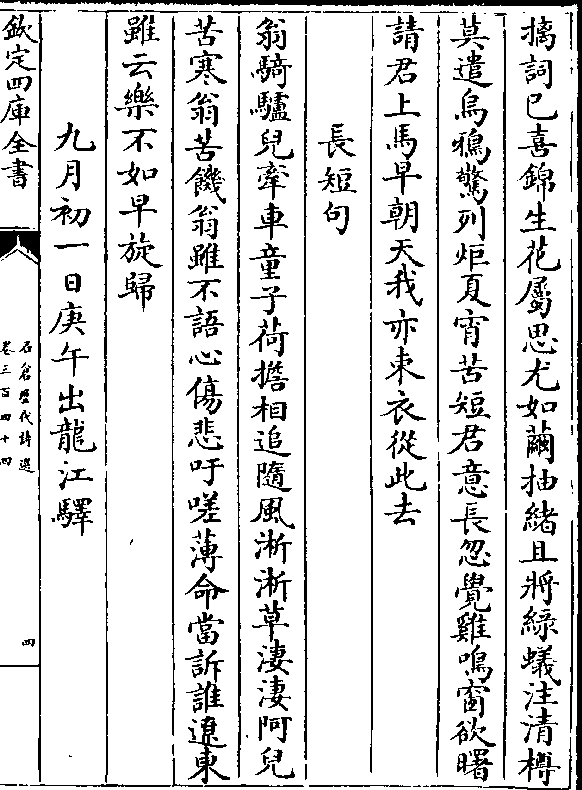 摛詞已喜錦生花屬思尤如繭抽緒且將綠蟻注清樽
莫遣烏鴉驚列炬夏宵苦短君意長忽覺雞鳴窗欲曙
請君上馬早朝天我亦束衣從此去
長短句
翁騎驢兒牽車童子荷擔相追隨風淅淅草淒淒阿兒
苦寒翁苦饑翁雖不語心傷悲吁嗟薄命當訴誰遼東
雖云樂不如早旋歸
九月初一日庚午出龍江驛
欽定四庫全書
石倉歷代詩選
卷三百四十四
四